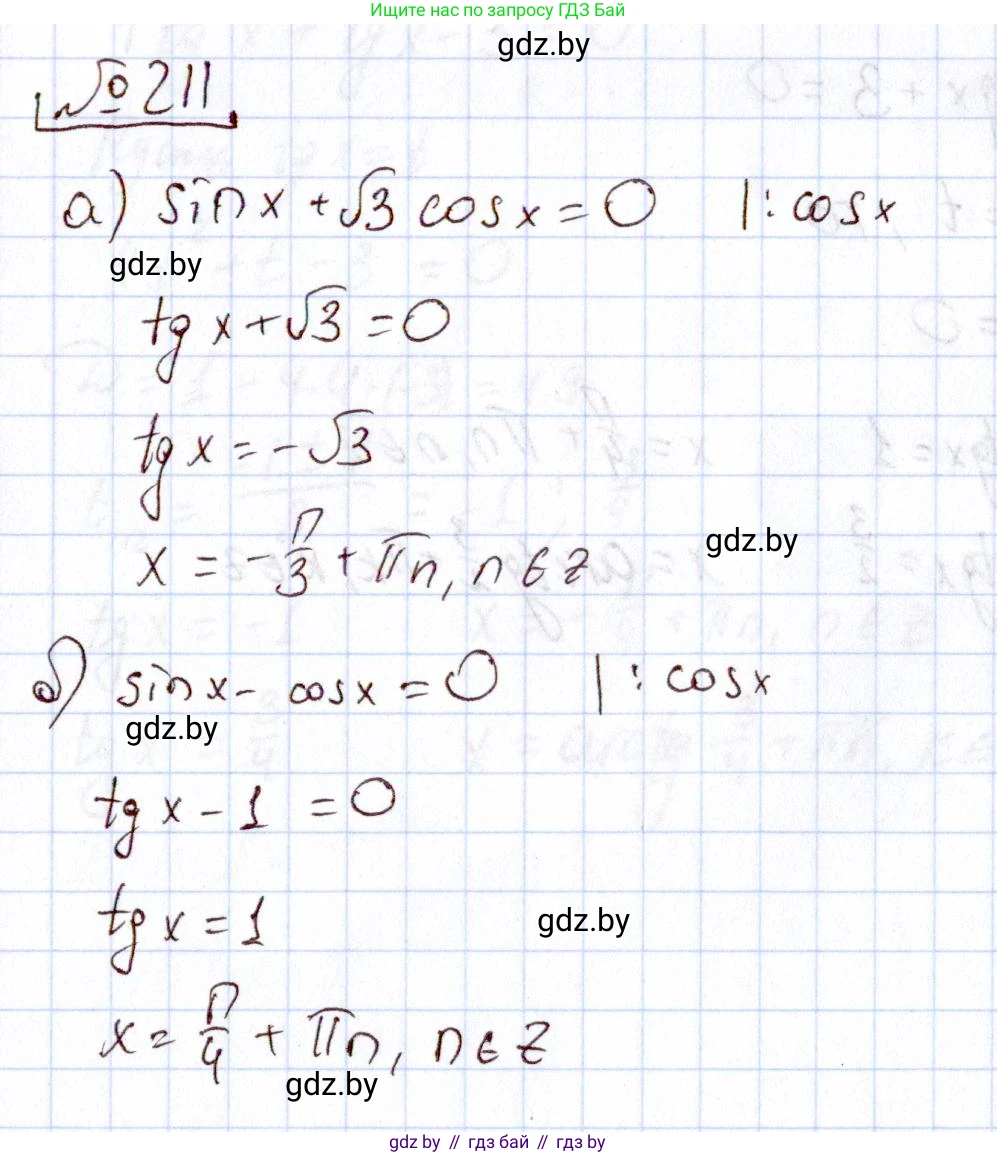 Ищите нас по запросу ГДЗ Бай
gdz.by
№ 211
а) sin x + √3 cos x = 0 | : cos x
gdz.by
tg x + √3 = 0
tg x = - √3
x = - π/3 + πn, n ∈ Z
gdz.by
б) sin x - cos x = 0 | : cos x
gdz.by
tg x - 1 = 0
tg x = 1
gdz.by
x = π/4 + πn, n ∈ Z
gdz.by
gdz by // гдз бай // гдз by